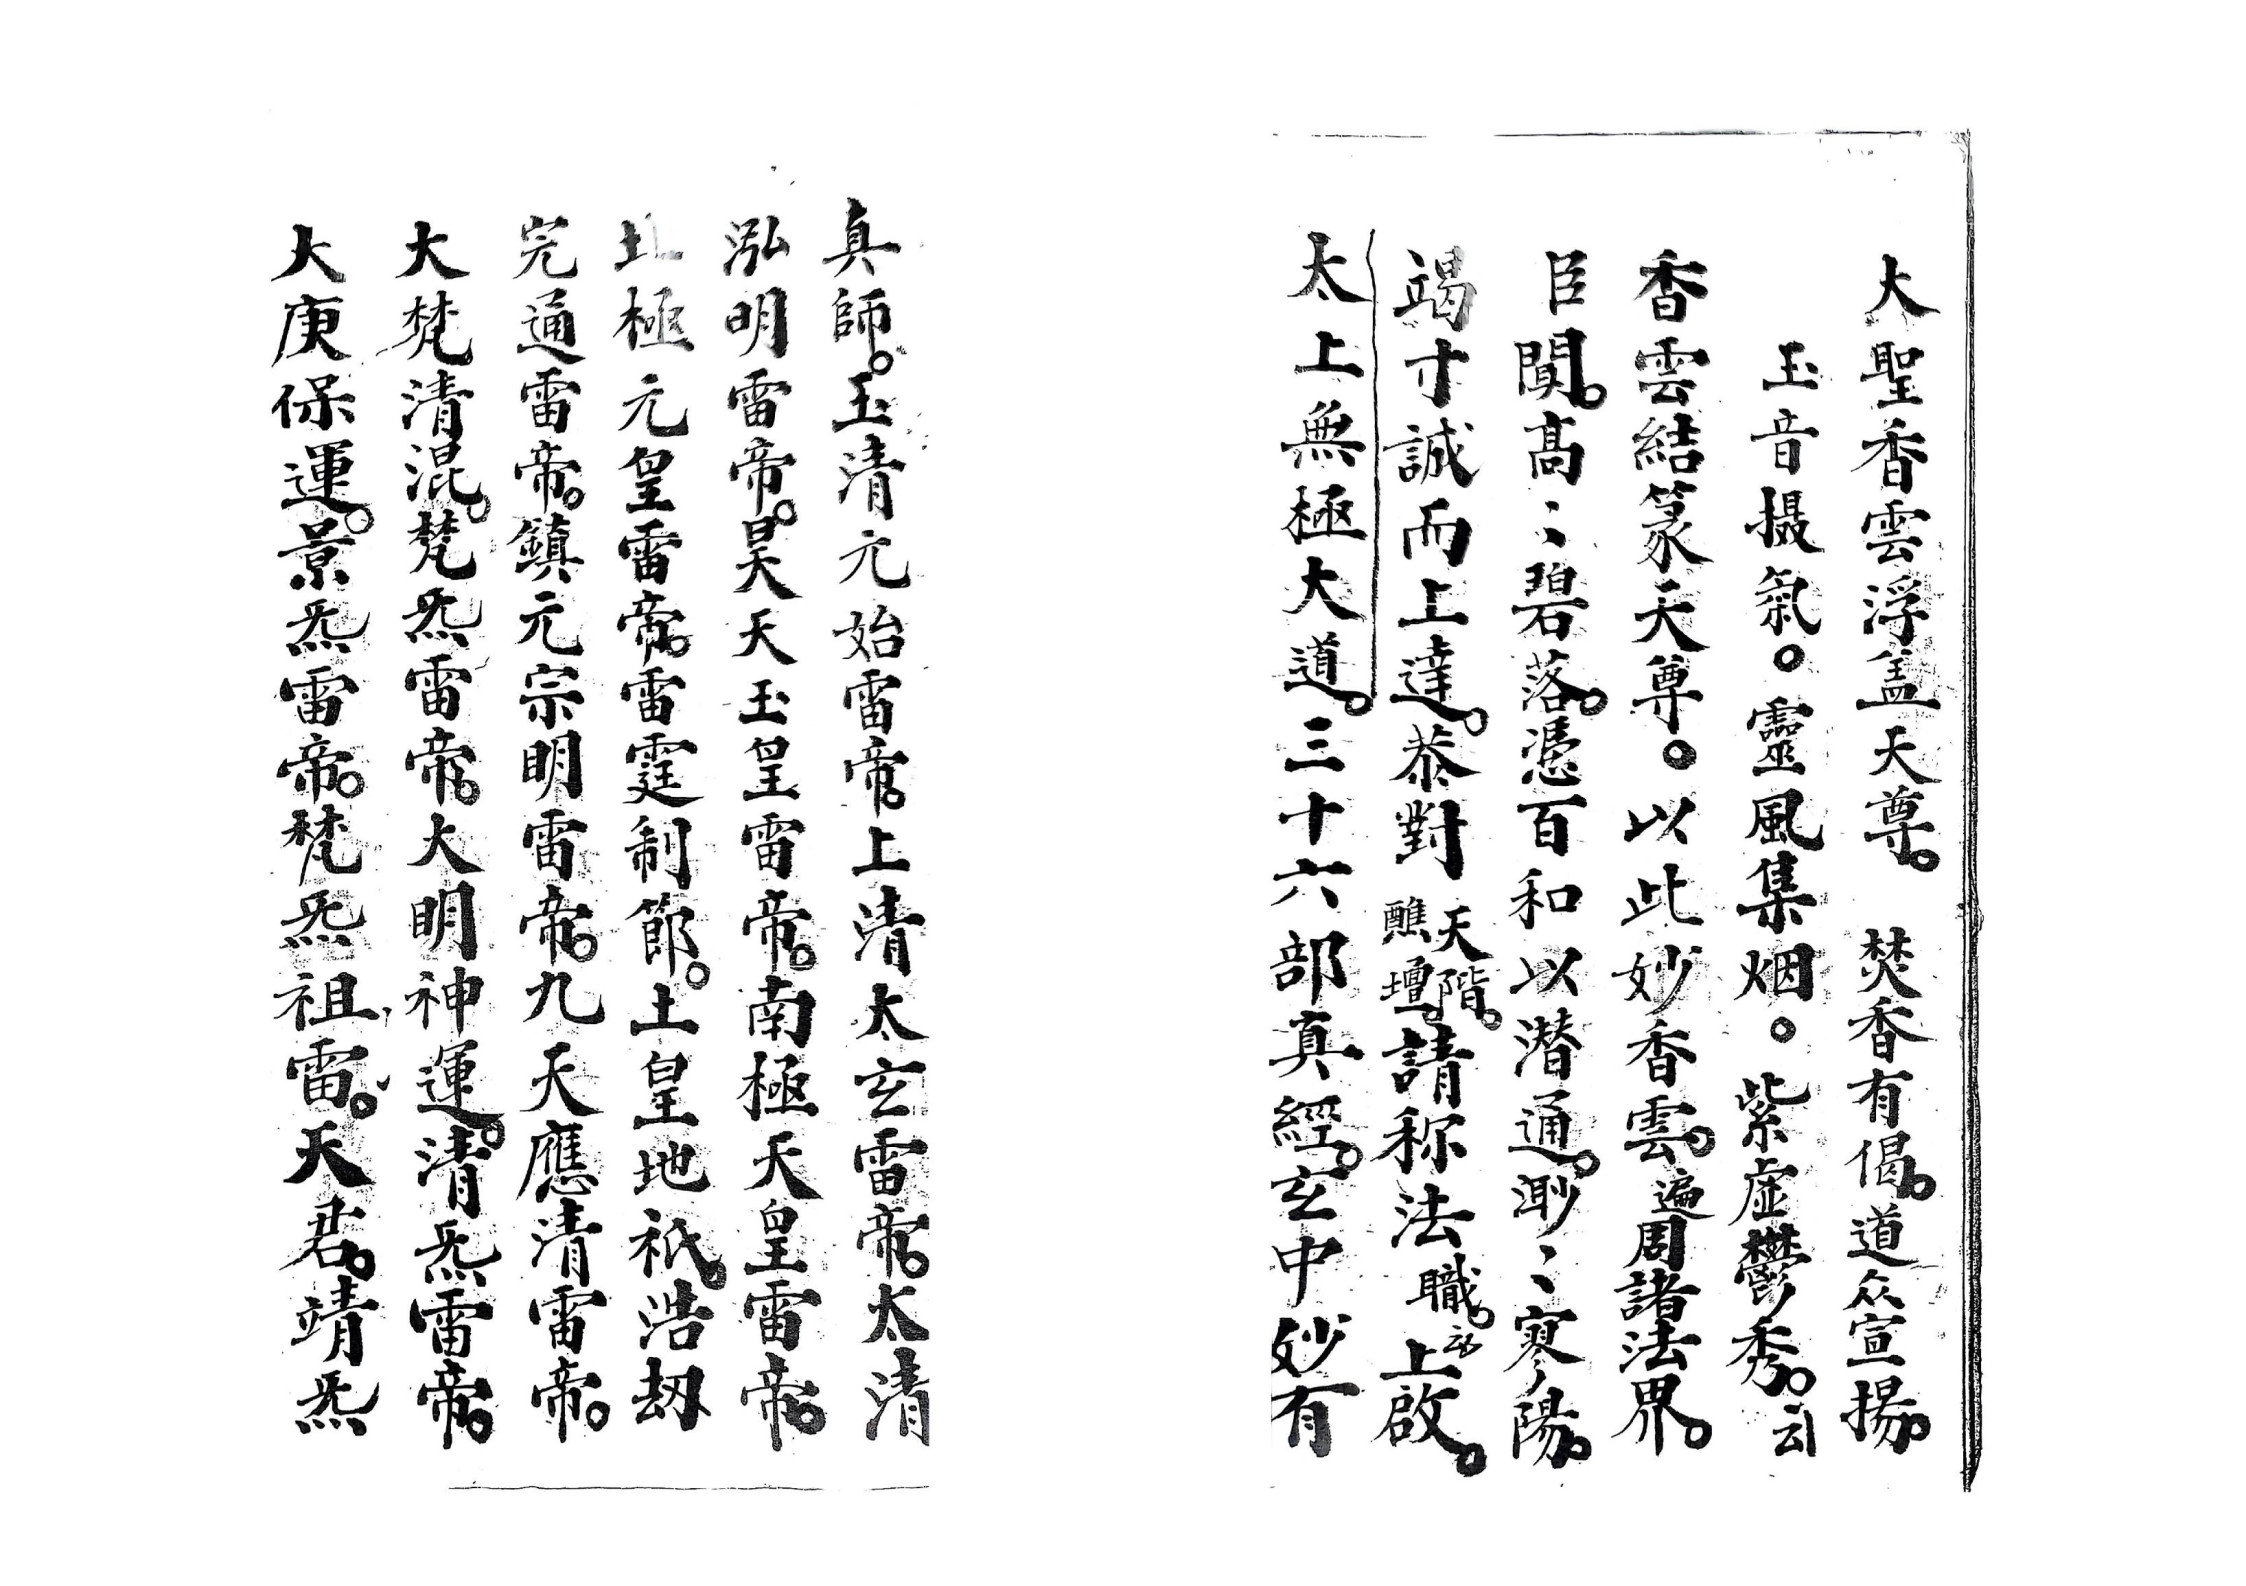 大聖香雲浮盖天尊。 焚香有偈。道众宣揚。
玉音摄氣。靈風集烟。紫虚鬱秀。云
香雲结篆天尊。以此妙香雲。遍周諸法界。
臣聞。高〻碧落。憑百和以潜通。渺〻寥陽。
竭寸誠而上達。恭對天階。醮壇。請称法職。 上啟。
太上無極大道。三十六部真經。玄中妙有
真師。玉清元始雷帝。上清太玄雷帝。太清
泓明雷帝。昊天玉皇雷帝。南極天皇雷帝。
北極元皇雷帝。雷霆制節。土皇地祇。浩劫
完通雷帝。鎮元宗明雷帝。九天應清雷帝。
大梵清混。梵炁雷帝。大明神運。清炁雷帝。
大庚保運。景炁雷帝。梵炁祖雷。天君。靖炁